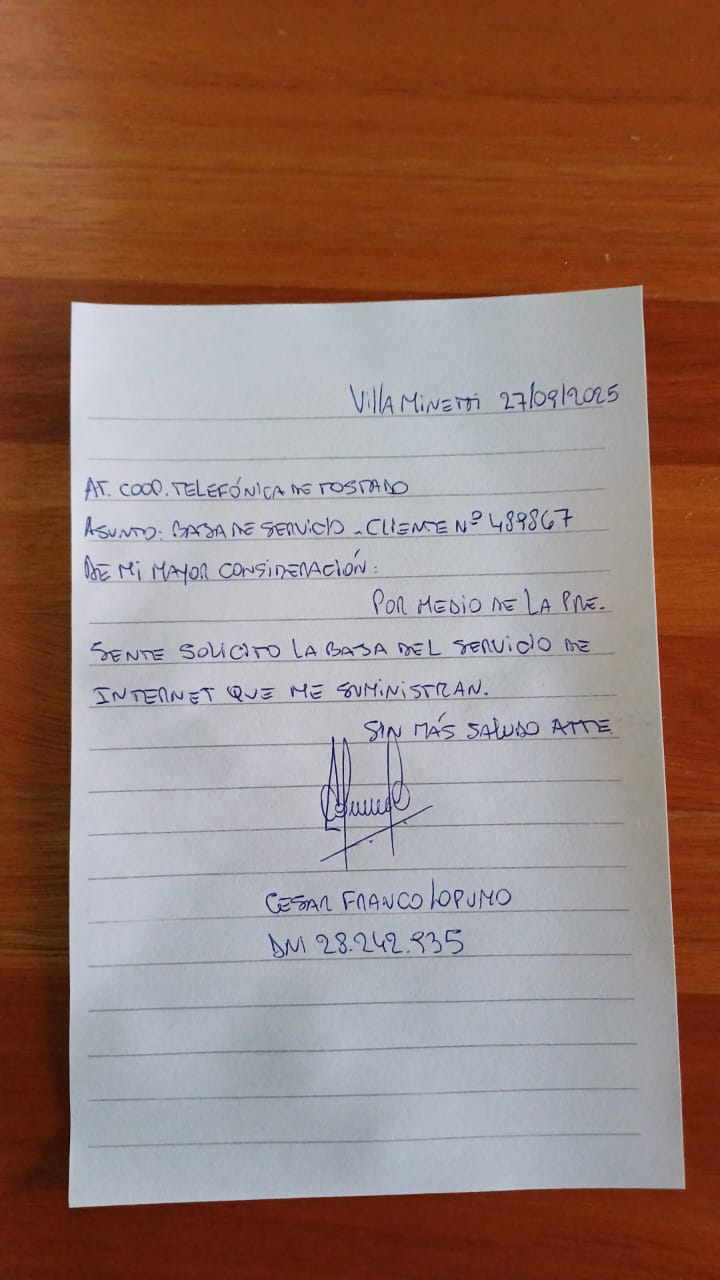 Villa Minetti 27/09/2025
AT. COOP. TELEFÓNICA DE TOSTADO
ASUNTO: BAJA DE SERVICIO - CLIENTE Nº 489867
DE MI MAYOR CONSIDERACIÓN:
POR MEDIO DE LA PRE-
SENTE SOLICITO LA BAJA DEL SERVICIO DE
INTERNET QUE ME SUMINISTRAN.
SIN MÁS SALUDO ATTE.
CESAR FRANCO LOPUMO
DNI 28.242.935